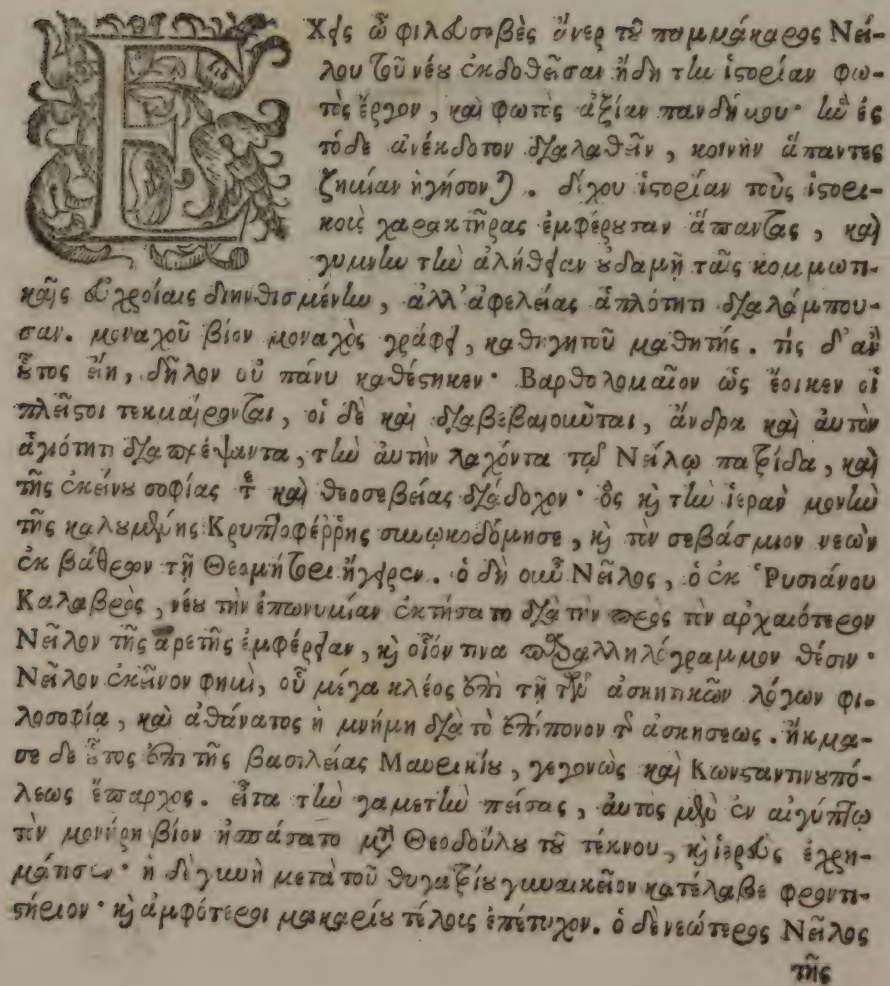 Ἔχεις ὦ φιλευσεβὲς ἄνερ τοῦ παμμάκαρος Νεί-
λου τοῦ νέου ἐκδοθεῖσαν ἤδη τὴν ἱστορίαν φω-
τὸς ἔργον, καὶ φωτὸς ἀξίαν πανδήμου· ἣν ἐς
τόδε ἀνέκδοτον διαλαθεῖν, κοινὴν ἅπαντες
ζημίαν ἡγήσονται. ἔχου ἱστορίαν τοὺς ἱστορι-
κοὺς χαρακτῆρας ἐμφέρουσαν ἅπαντας, καὶ
γυμνὴν τὴν ἀλήθειαν οὐδαμῆ ταῖς κομμωτι-
καῖς εὐχροίαις διηνθισμένην, ἀλλ' ἀφελείας ἁπλότητι διαλάμπου-
σαν. μοναχοῦ βίον μοναχὸς γράφει, καθηγητοῦ μαθητής. τίς δ' ἂν
οὗτος εἴη, δῆλον οὐ πάνυ καθέστηκεν· Βαρθολομαῖον ὡς ἔοικεν οἱ
πλεῖστοι τεκμαίρονται, οἱ δὲ καὶ διαβεβαιοῦνται, ἄνδρα καὶ αὐτὸν
ἁγιότητι διαπρέψαντα, τὴν αὐτὴν λαχόντα τῷ Νείλῳ πατρίδα, καὶ
τῆς ἐκείνου σοφίας τε καὶ θεοσεβείας διάδοχον· ὃς καὶ τὴν ἱερὰν μονὴν
τῆς καλουμένης Κρυπτοφέρρης συνῳκοδόμησε, καὶ τὸν σεβάσμιον νεὼν
ἐκ βάθρον τῇ Θεομήτορι ἤγειρεν. ὁ δὴ οὖν Νεῖλος, ὁ ἐκ Ῥυσιάνου
Καλαβρὸς, νέου τὴν ἐπωνυμίαν ἐκτήσατο διὰ τὴν πρὸς τὸν ἀρχαιότερον
Νεῖλον τῆς ἀρετῆς ἐμφέρειαν, καὶ οἷόν τινα παραλληλόγραμμον θέσιν·
Νεῖλον ἐκεῖνον φημὶ, οὗ μέγα κλέος ἐπὶ τῇ τῶν ἀσκητικῶν λόγων φι-
λοσοφία, καὶ ἀθάνατος ἡ μνήμη διὰ τὸ ἐπίπονον τῆς ἀσκήσεως. ἤκμα-
σε δὲ οὗτος ἐπὶ τῆς βασιλείας Μαυρικίου, γεγονὼς καὶ Κωνσταντινουπό-
λεως ἔπαρχος. εἶτα τὴν γαμετὴν πείσας, αὐτὸς μὲν ἐν αἰγύπτῳ
τὸν μονήρη βίον ἠσπάσατο μετὰ Θεοδούλου τοῦ τέκνου, καὶ ἱερεὺς ἐχρη-
μάτισεν· ἡ δὲ γυνὴ μετὰ τοῦ θυγατρίου γυναικεῖον κατέλαβε φροντι-
στήριον· καὶ ἀμφότεροι μακαρίου τέλους ἐπέτυχον. ὁ δὲ νεώτερος Νεῖλος
τῆς